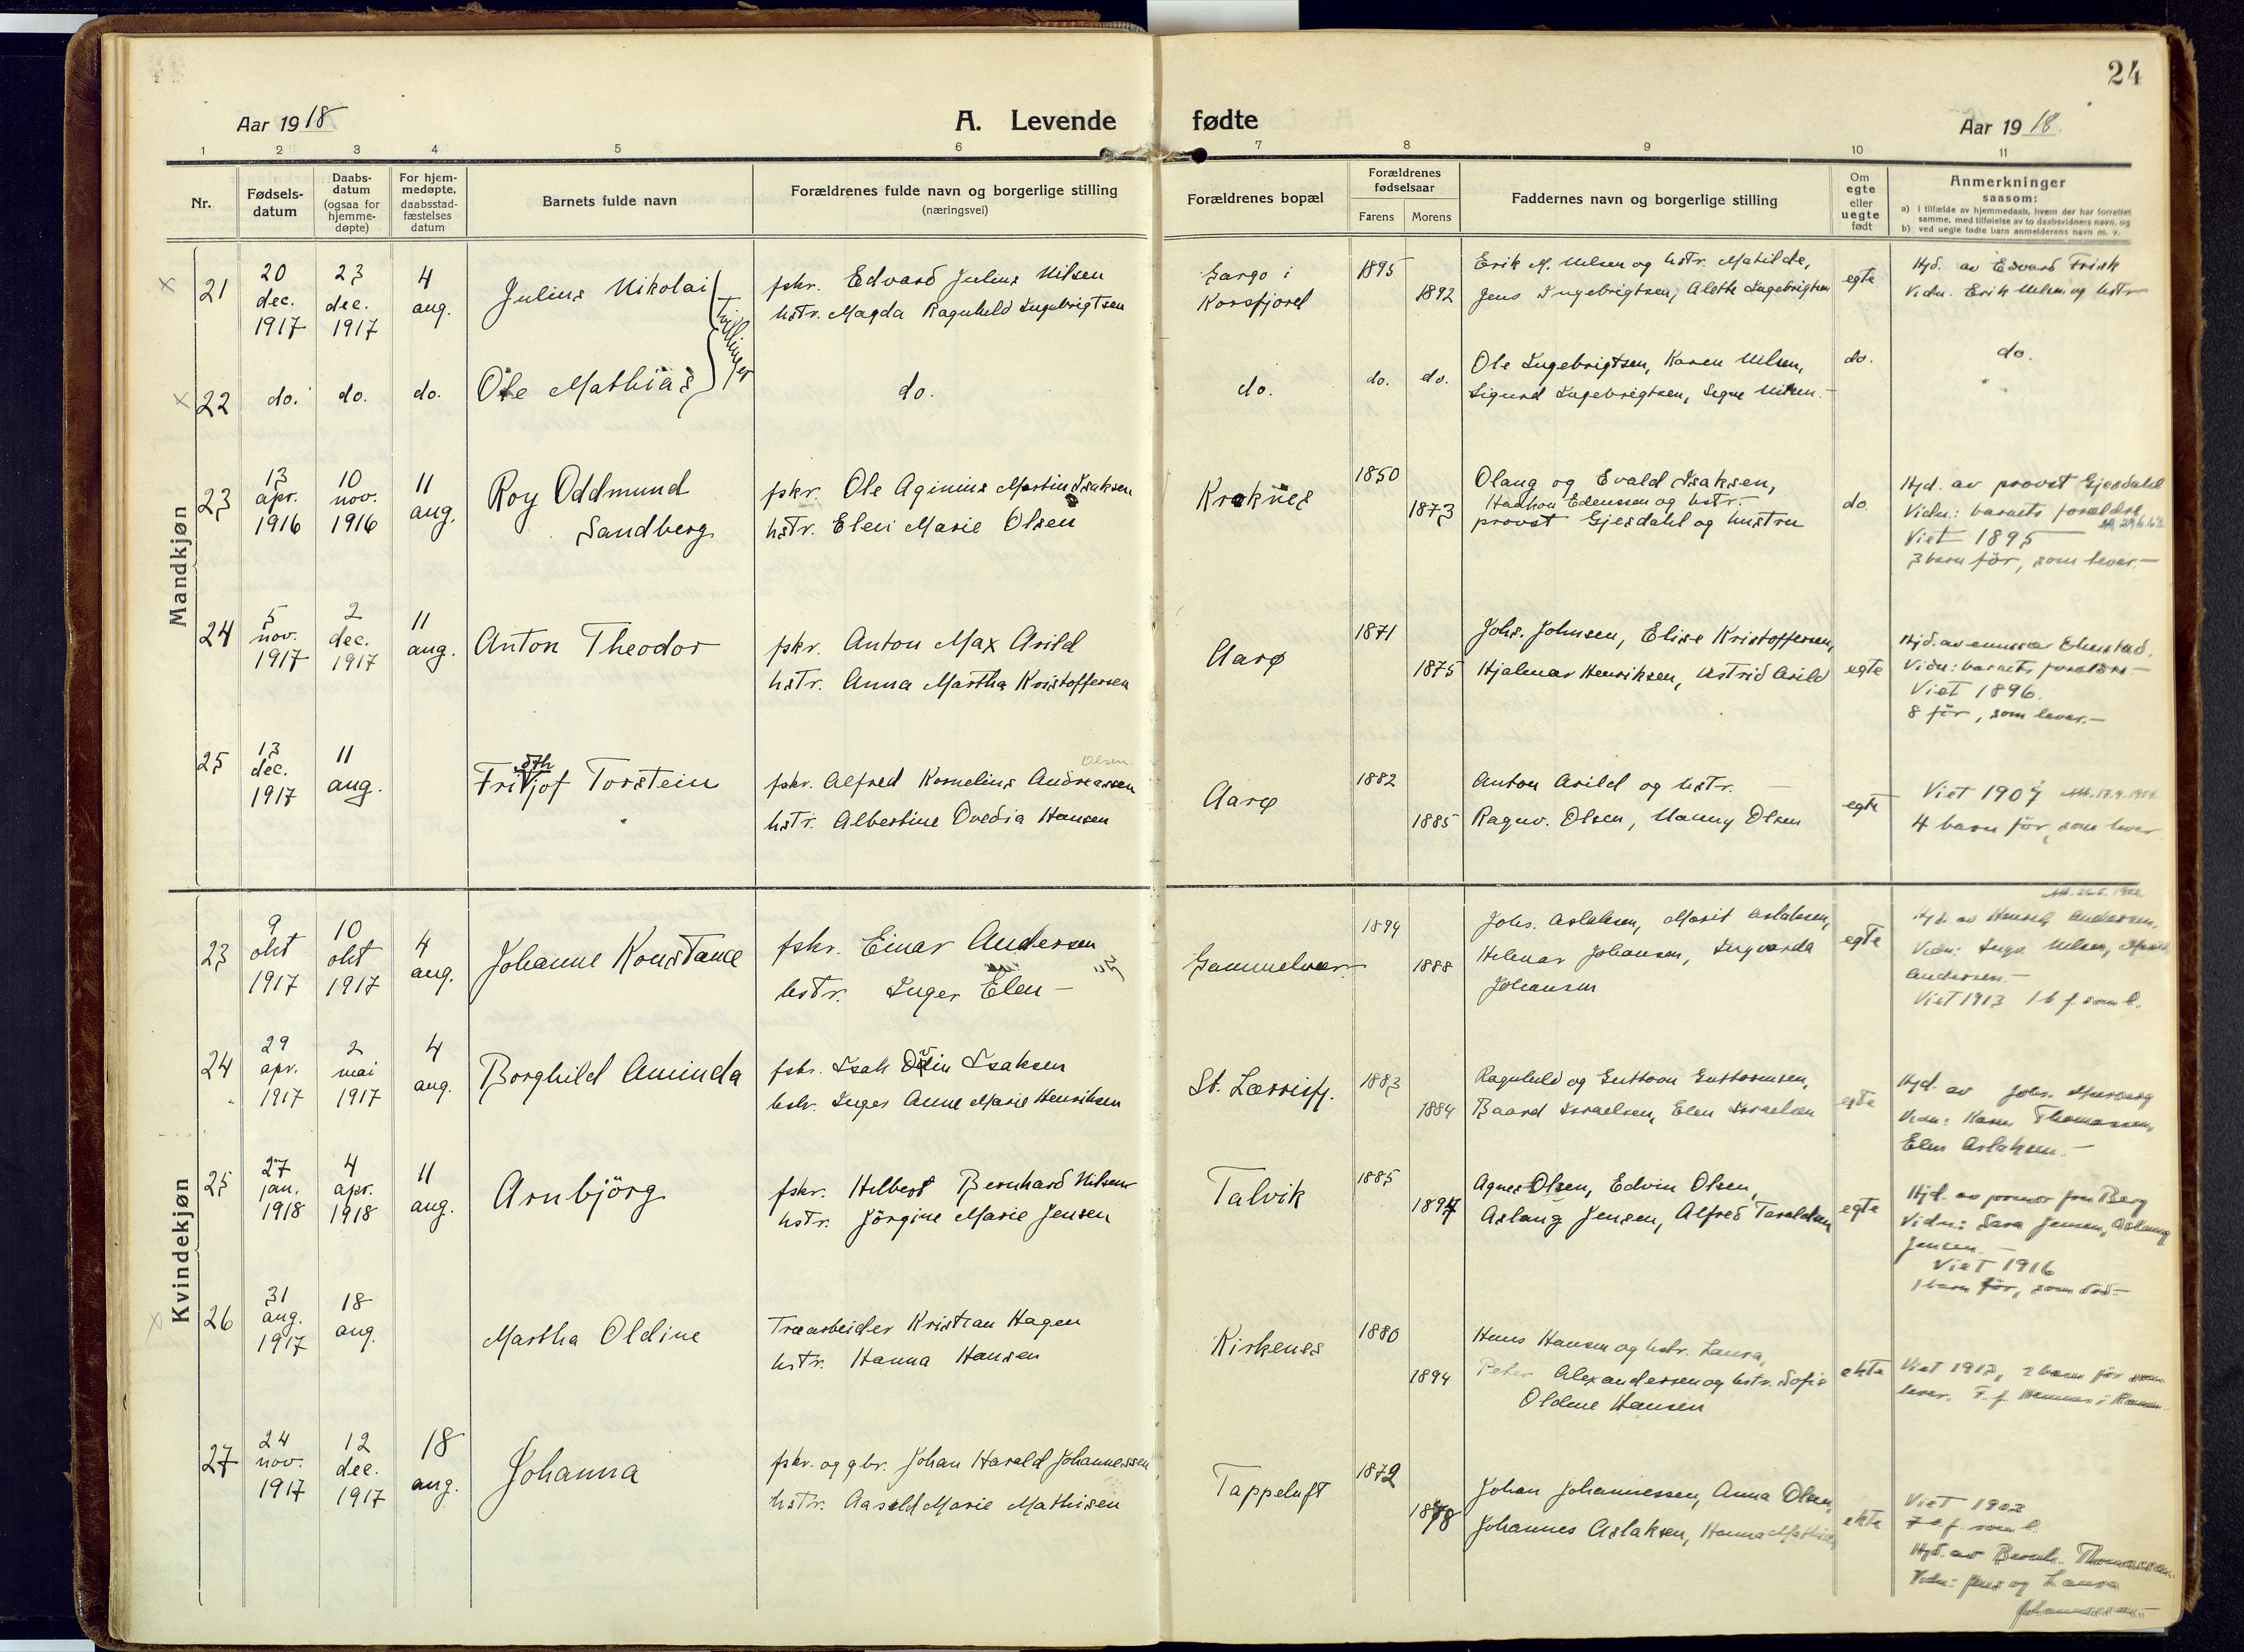 24
Aar 1918
A. Levende fødte
Aar 1918.
1 2 3 4 5 6 7 8 9 10 11
Nr.
Fødsels-
datum
Daabs-
datum
(ogsaa for
hjemme-
døpte)
For hjem-
medøpte,
daabsstad-
fæstelses
datum
Barnets fulde navn
Forældrenes fulde navn og borgerlige stilling
(næringsvei)
Forældrenes bopæl
Forældrenes
fødselsaar
Farens Morens
Faddernes navn og borgerlige stilling
Om
egte
eller
uegte
født
Anmerkninger
saasom:
a) i tilfælde av hjemmedaab, hvem der har forrettet
samme, med tilføielse av to daabsvidners navn, og
b) ved uegte fødte barn anmelderens navn m. v.
Mandkjøn
21
20
dec.
1917
23
dec.
1917
4
aug.
Julius Nikolai
Tvillinger
fskr. Edvard Julius Nilsen
hstr. Magda Ragnhild Ingebrigtsen
Gargo i
Korsfjord
1895
1892
Erik M. Nilsen og hstr. Matilde,
Jens Ingebrigtsen, Alette Ingebrigtsen
egte
Hjd. av Edvard Frisk
Vidn. Erik Nilsen og hstr
22
do.
do.
do.
Ole Mathias
do.
do.
do. do.
Ole Ingebrigtsen, Karen Nilsen,
Sigurd Ingebrigtsen, Signe Nilsen.-
do.
do.
23
13
apr.
1916
10
nov.
1916
11
aug.
Roy Oddmund
Sandberg
fskr. Ole Aginius Martin Isaksen
hstr. Elen Marie Olsen
Kroknes
1850
1873
Olaug og Evald Isaksen,
Haakon Edenssen og hstr.
provst Gjesdahl og hustru
do.
Hjd. av provst Gjesdahl
Vidn.: barnets forældre
Viet 1895
3 barn før, som lever.-
24
5
nov.
1917
2
dec.
1917
11
aug.
Anton Theodor
fskr. Anton Max Arild
hstr. Anna Martha Kristoffersen
Aarø
1871
1875
Johs. Johnsen, Elise Kristoffersen,
Hjalmar Henriksen, Astrid Arild
egte
Hjd. av emissær
Vidn: barnets forældre.-
Viet 1896.
8 før, som lever.-
25
13
dec.
1917
11
aug.
Frithjof Torstein
Olsen
fskr. Alfred Kornelius Andreassen
hstr. Albertine Ovedia Hansen
Aarø
1882
1885
Anton Arild og hstr.
Ragnv. Olsen, Nanny Olsen
egte
Viet 1907
4 barn før, som lever
Kvindekjøn
23
9
okt
1917
10
okt
1917
4
aug.
Johanne Konstance
fskr. Einar Andersen
hstr. Inger Elen -
Gammelvær
1894
1888
Johs. Aslaksen, Marit Aslaksen,
Hilmar Johansen, Ingvarda
Johansen
egte
Hjd. av Andersen,
Vidn: Inga Nilsen,
Andersen.-
Viet 1913 1 b. f. som l.
24
29
apr.
1917
2
mai
1917
4
aug.
Borghild Aminda
fskr. Isak Isaksen
hstr. Inger Anne Marie Henriksen
St. Lærrisfj.
1883
1884
Ragnhild og Guttorm Guttormsen,
Baard Israelsen, Elen Israelsen
egte
Hjd. av Johs.
Vidn: Karen Thomassen,
Elen Aslaksen.-
25
27
jan.
1918
4
apr.
1918
11
aug.
Arnbjörg
fskr. Hilbert Bernhard Nilsen
hstr. Jörgine Marie Jensen
Talvik
1885
1894
Agnes Olsen, Edvin Olsen,
Aslaug Jensen, Alfred Taraldsen
egte
Hjd. av jormor fru Berg
Vidn: Sara Jensen, Aslaug
Jensen.-
Viet 1916
1 barn før, som död.-
26
31
aug.
1917
18
aug.
Martha Oldine
Træarbeider Kristian Hagen
hstr. Hanna Hansen
Kirkenes
1880
1894
Hans Hansen og hstr. Laura,
Peter Alexandersen og hstr. Sofie
Oldine Hansen
ekte
Viet 1917, 2 barn før som
lever. F. f.
27
24
nov.
1917
12
dec.
1917
18
aug.
Johanna
fskr. og gbr. Johan Harald Johannessen
hstr. Aasold Marie Mathisen
Tappeluft
1872
1878
Johan Johannessen, Anna Olsen,
Johannes Aslaksen, Hanna Mathisen
ekte
Viet 1902
7 b. f. som l.
Hjd. av Bernh. Thomassen.
Vidn: Jens og Laura
Johannessen.-